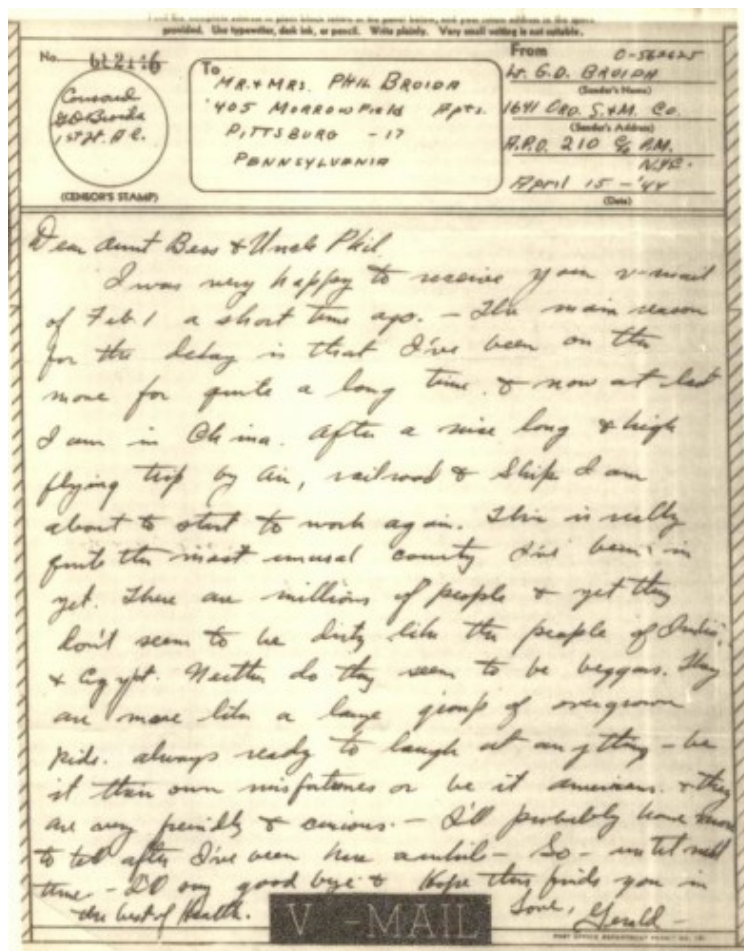 provided. Use typewriter, dark ink, or pencil. Write plainly. Very small writing is not suitable.
No.
Censored
GDBroida
1st Lt. A.C.
(CENSOR'S STAMP)
To
MR. & MRS. PHIL BROIDA
405 MORROWFIELD Apts.
PITTSBURG -17
PENNSYLVANIA
From O-562625
Lt. G.D. BROIDA
(Sender's Name)
1641 ORD. S.&M. Co.
(Sender's Address)
A.P.O. 210 c/o P.M.
N.Y.C.
April 15 - '44
(Date)
Dear Aunt Bess & Uncle Phil
I was very happy to receive your v-mail
of Feb. 1 a short time ago. - The main reason
for the delay is that I've been on the
move for quite a long time. & now at last
I am in China. After a nice long & high
flying trip by air, railroad & Ship I am
about to start to work again. This is really
quite the most unusal county I've been in
yet. There are millions of people & yet they
don't seem to be dirty like the people of India,
& Egypt. Neither do they seem to be beggars. They
are more like a large group of overgrown
kids. always ready to laugh at anything - be
it their own misfortunes or be it americans. & they
are very freindly & curious. - I'll probably have more
to tell after I've been here awhile - So - until next
time - I'll say good bye & Hope this finds you in
the best of Health.
Love, Gerald -
V -MAIL